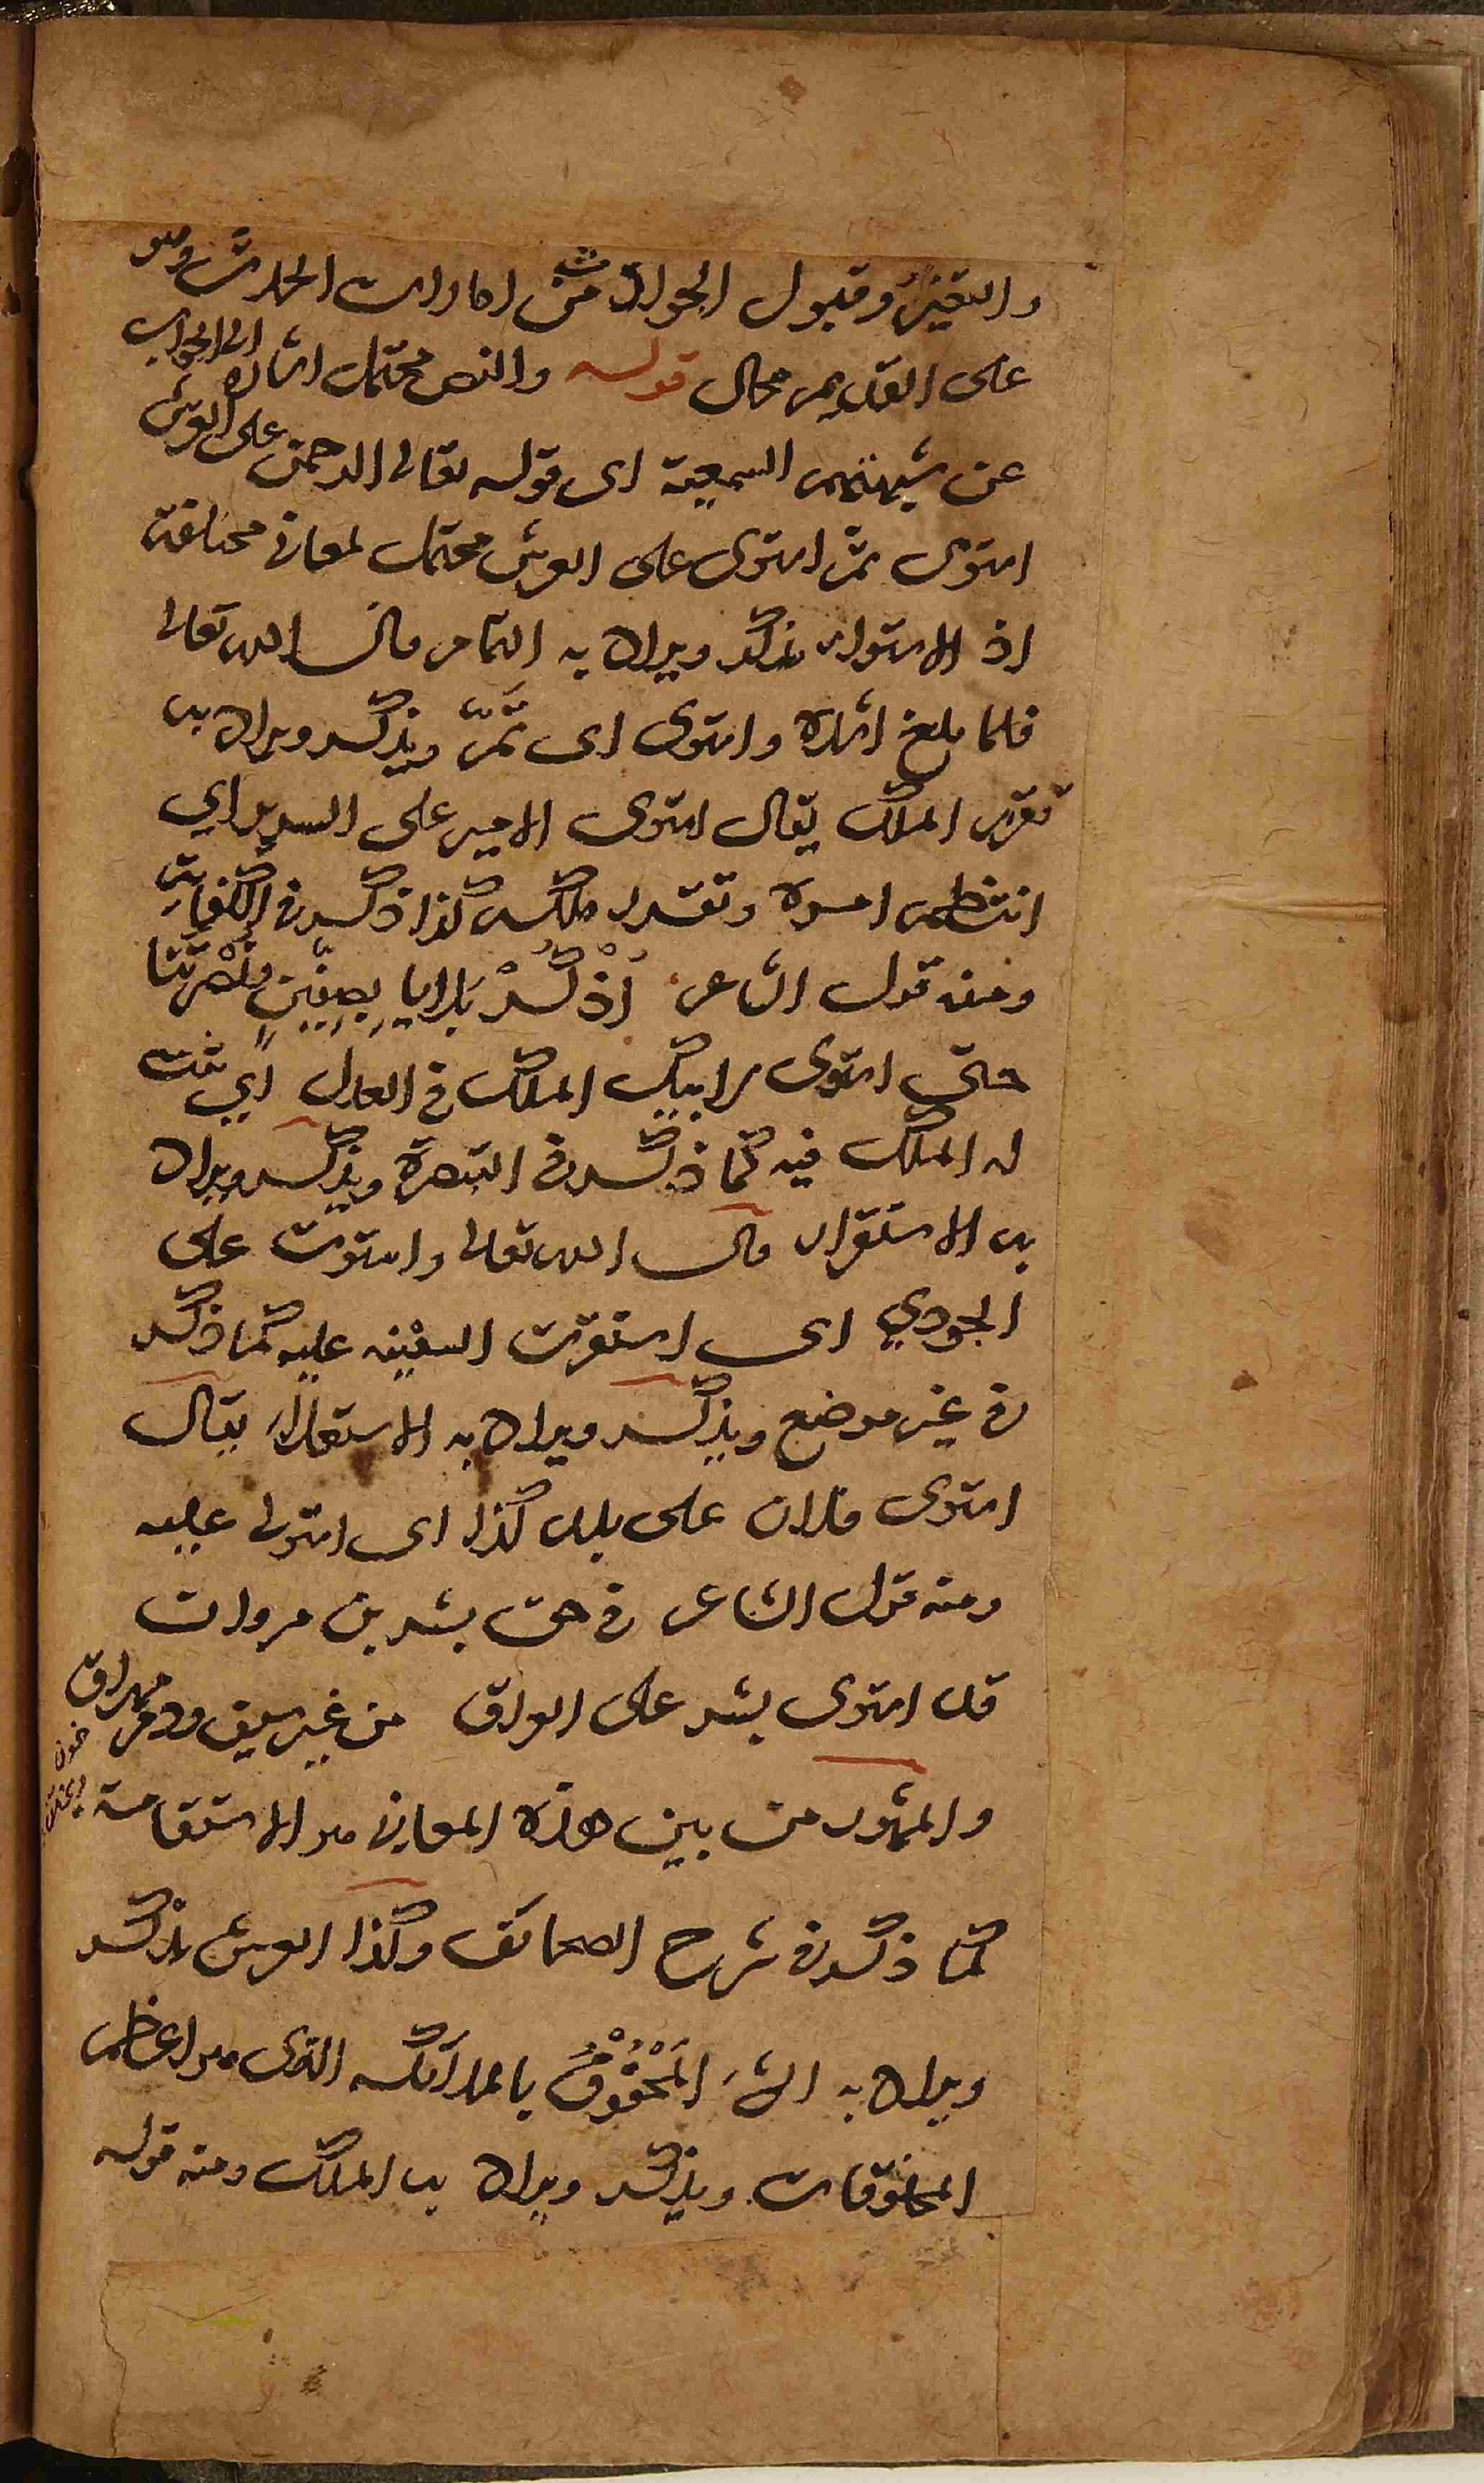 والتغير وقبول الحوادث من امارات الحدث وهو
على القديم محال قوله والنص محتمل اشارة الى الجواب
عن شبهتهم السمعية اى قوله تعالى الرحمن على العرش
استوى ثم استوى على العرش محتمل لمعان مختلفة
اذ الاستواء يذكر ويراد به التمام قال الله تعالى
فلما بلغ اشده واستوى اى تَمَّ ويذكر ويراد به
تقرير الملك يقال استوى الامير على السرير اي
انتظم امره وتقرر ملكه كذا ذكر في الكفاية
ومنه قول الشاعر اُذْكُرْ بَلايا بِصِفِّينٍ ونُصْرَتَنا
حتى استوى لابيك الملك في العدل اي ثبت
له الملك فيه كما ذكر في التبصرة ويذكر ويراد
به الاستقرار قال الله تعالى واستوت على
الجودي اى استقرت السفينه عليه كما ذكر
في غير موضع ويذكر ويراد به الاستعلاء يقال
استوى فلان على بلد كذا اى استولى عليه
ومنه قول الشاعر في حق بشر بن مروان
قد استوى بشر على العراق من غير سيف ودم مهراق
والمشهور من بين هذه المعاني هو الاستقامة
كما ذكر في شرح الصحائف وكذا العرش يذكر
ويراد به الشئ المَحْفُوْفُ بالملائكه الذى هو اعظم
المخلوقات ويذكر ويراد به الملك ومنه قوله